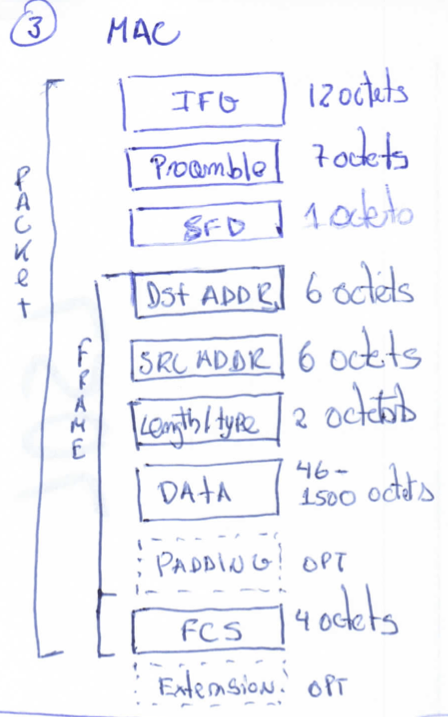 3 MAC
PACKet
FRAME
IFG 12 octets
Preamble 7 octets
SFD 1 octeto
DSt ADDR 6 octets
SRC ADDR 6 octets
Length/type 2 octets
DAtA 46-
1500 octets
PADDING OPT
FCS 4 octets
Extension. OPT